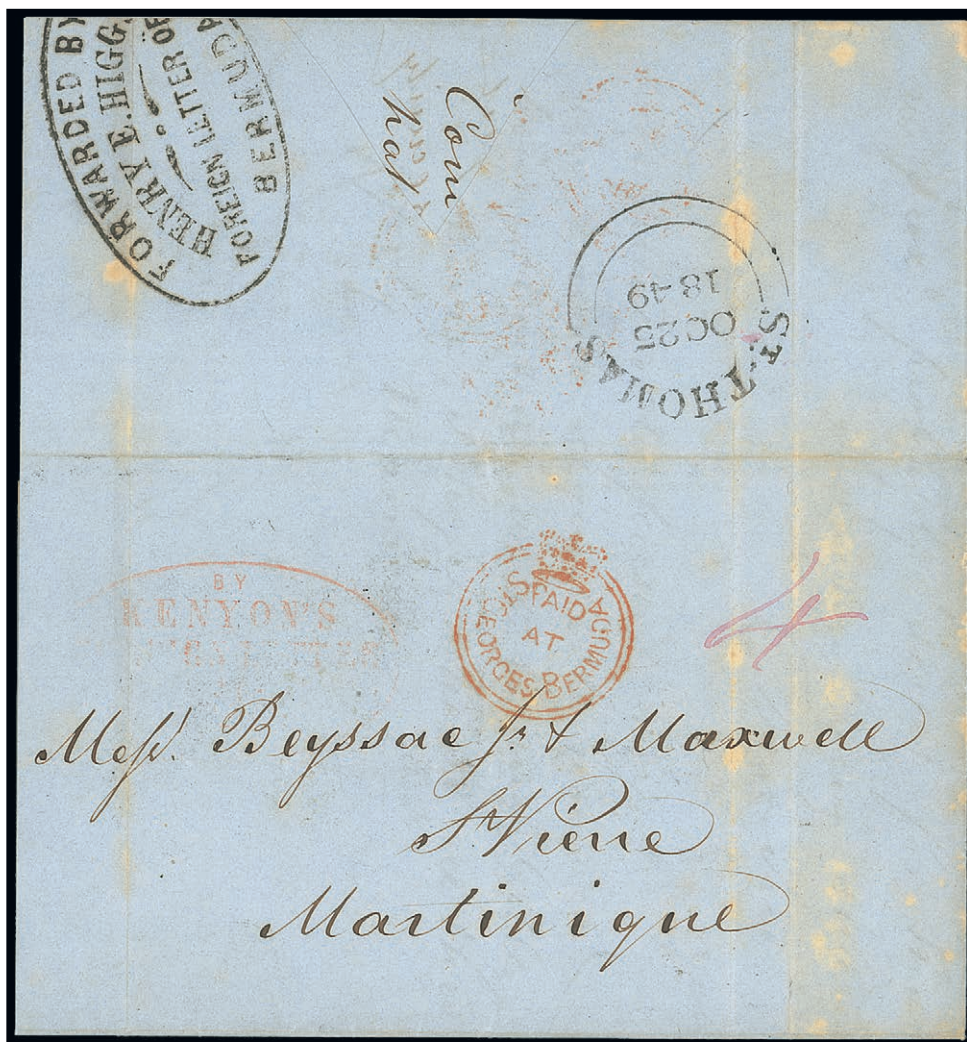 FORWARDED BY
HENRY E. HIGG
FOREIGN LETTER OF
BERMUDA
Com
hat
ST. THOMAS
OC 25
1849
BY
KENYON'S
LETTER
PAID
AT
ST GEORGES BERMUDA
4
Mess. Beyssac Jr. & Maxwell
St. Pierre
Martinique